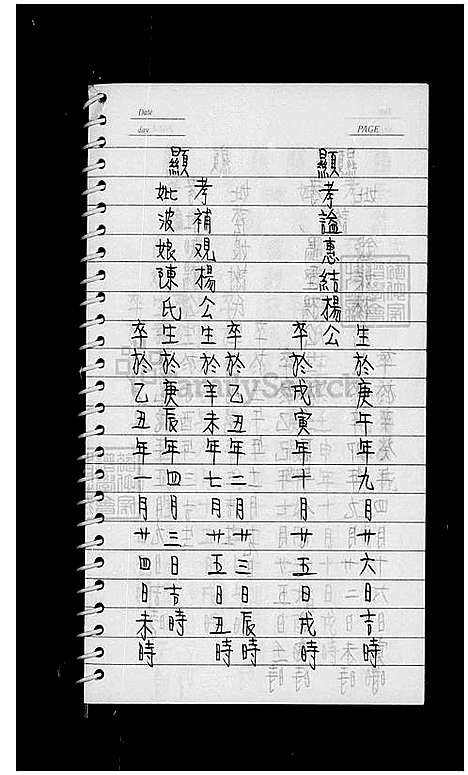 Date
day
PAGE
顯考諡惠結楊公
生於庚午年九月廿六日吉時
卒於戍寅年十月廿五日戍時
顯
考補观楊公
卒於乙丑年二月廿三日辰時
生於辛未年七月廿五日丑時
妣波娘陳氏
生於庚辰年四月三日吉時
卒於乙丑年一月廿四日未時
FamilySearch